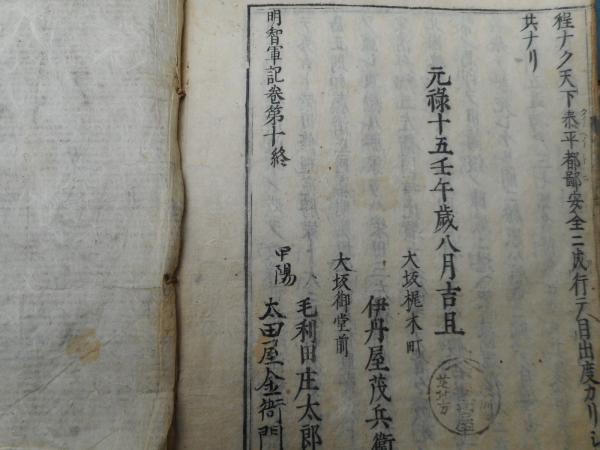 程ナク天下泰平都鄙安全ニ成行テ目出度カリシ
共ナリ
元祿十五壬午歳八月吉旦
大坂梶木町
伊丹屋茂兵衛
大坂御堂前
毛利田庄太郎
甲陽
太田屋金衛門
明智軍記卷第十終